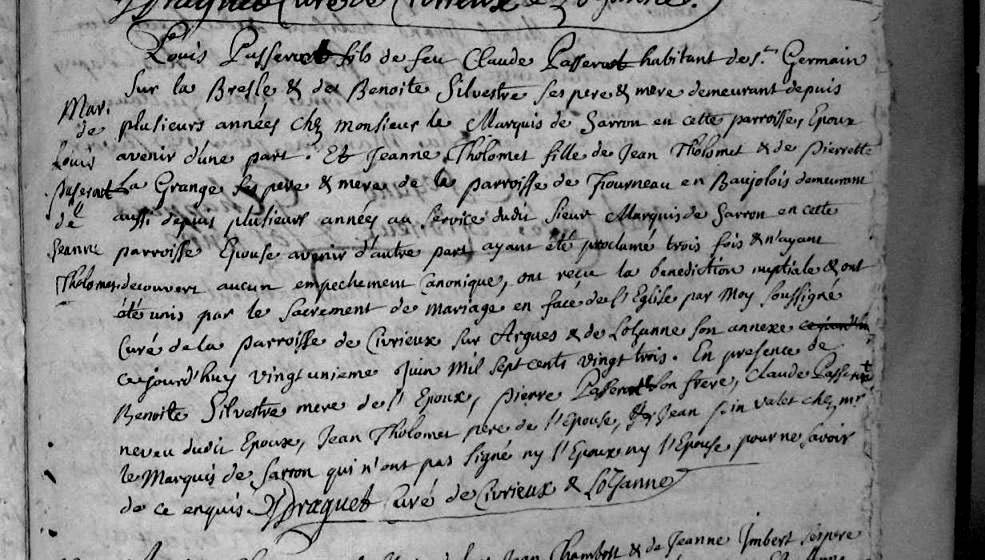 Draguet Curé de Civrieux & Lozanne.
Louis Passerat fils de feu Claude Passerat habitant de St. Germain
Sur la Bresle & de Benoite Silvestre ses pere & mere demeurant depuis
Mar.
de
Louis
Passerat
&
Jeanne
Tholomet
plusieurs années chez Monsieur le Marquis de Sarron en cette parroisse, Epoux
avenir d'une part. Et Jeanne Tholomet fille de Jean Tholomet & de Pierrette
La Grange ses pere & mere de la parroisse de Fourneau en Baujolois demeurant
aussi depuis plusieurs années au service dudit Sieur Marquis de Sarron en cette
parroisse Epouse avenir d'autre part ayant été proclamé trois fois & n'ayant
decouvert aucun empechement Canonique, ont reçu la benediction nuptiale & ont
été unis par le Sacrement de mariage en face de l'Eglise par Moy soussigné
Curé de la parroisse de Civrieux sur Argues & de Lozanne son annexe
cejourd'huy vingt unieme Juin Mil sept cents vingt trois. En presence de
Benoite Silvestre mere de l'Epoux, pierre Passerat son frere, Claude Passerat
neveu dudit Epoux, Jean Tholomet pere de l'Epouse, & Jean valet chez mr
le Marquis de Sarron qui n'ont pas signé ny l'Epoux ny l'Epouse pour ne savoir
de ce enquis. Draguet Curé de Civrieux & Lozanne
Jean Chambost & de Jeanne Imbert ses pere